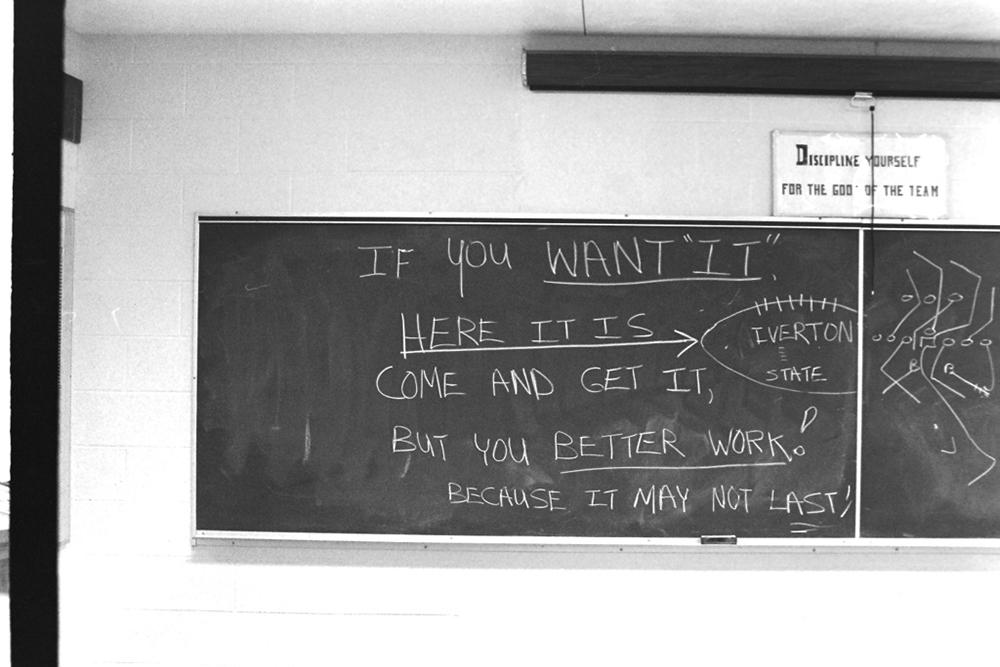 DISCIPLINE YOURSELF
FOR THE GOOD OF THE TEAM
IF YOU WANT "IT",
HERE IT IS
IVERTON
STATE
COME AND GET IT,
BUT YOU BETTER WORK!
BECAUSE IT MAY NOT LAST!